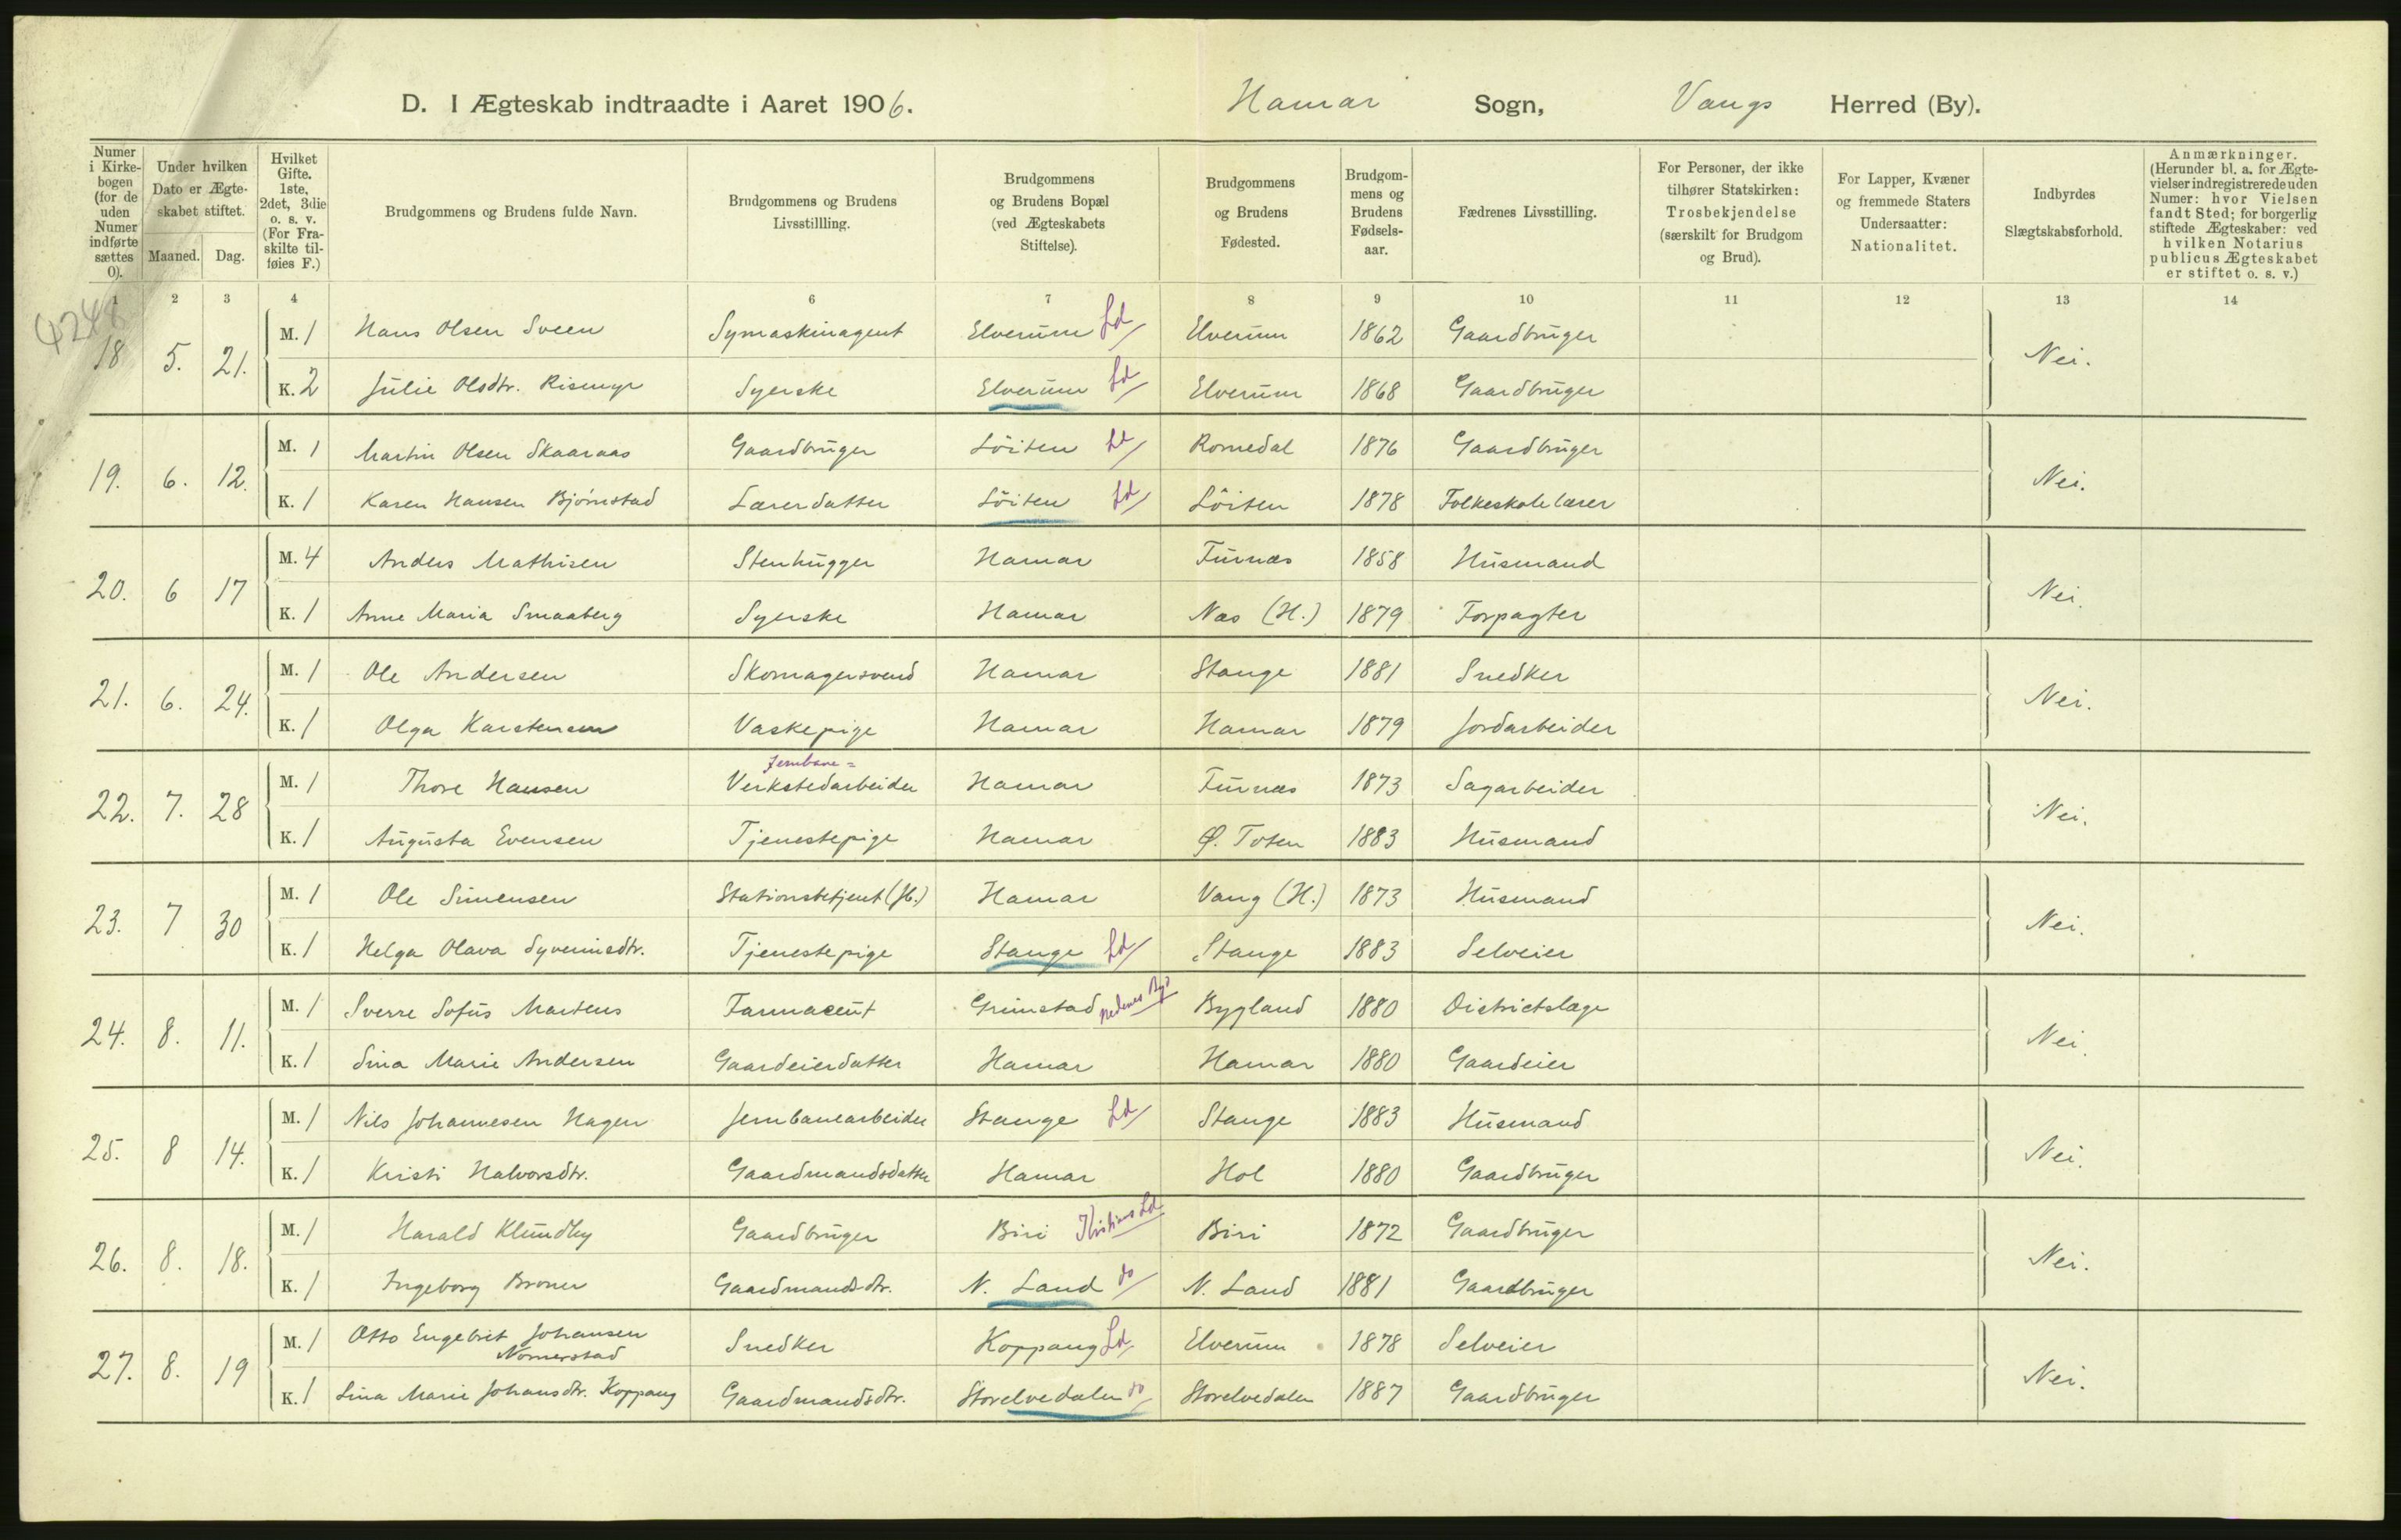 D. I Ægteskab indtraadte i Aaret 1906. Hamar Sogn, Vangs Herred (By).
Numer i Kirkebogen (for de uden Numer indførte sættes 0).
Under hvilken Dato er Ægteskabet stiftet.
Maaned. Dag.
Hvilket Gifte. 1ste, 2det, 3die o. s. v. (For Fraskilte tilføies F.)
Brudgommens og Brudens fulde Navn.
Brudgommens og Brudens Livsstillling.
Brudgommens og Brudens Bopæl (ved Ægteskabets Stiftelse).
Brudgommens og Brudens Fødested.
Brudgommens og Brudens Fødselsaar.
Fædrenes Livsstilling.
For Personer, der ikke tilhører Statskirken: Trosbekjendelse (særskilt for Brudgom og Brud).
For Lapper, Kvæner og fremmede Staters Undersaatter: Nationalitet.
Indbyrdes Slægtskabsforhold.
Anmærkninger. (Herunder bl. a. for Ægtevielser indregistrerede uden Numer: hvor Vielsen fandt Sted; for borgerlig stiftede Ægteskaber: ved hvilken Notarius publicus Ægteskabet er stiftet o. s. v.)
1 2 3 4 6 7 8 9 10 11 12 13 14
4248
18 5. 21. M. 1 Hans Olsen Sveen Symaskinagent Elverum Ld Elverum 1862 Gaardbruger Nei.
K. 2 Julie Olsdtr. Rismyr Syerske Elverum Ld Elverum 1868 Gaardbruger
19. 6. 12. M. 1 Martin Olsen Skaaraas Gaardbruger Löiten Ld Romedal 1876 Gaardbruger Nei.
K. 1 Karen Hansen Bjørnstad Lærerdatter Löiten Ld Löiten 1878 Folkeskolelærer
20. 6 17 M. 4 Anders Mathisen Stenhugger Hamar Furnæs 1858 Husmand Nei.
K. 1 Anne Maria Smaaberg Syerske Hamar Næs (H.) 1879 Forpagter
21. 6. 24. M. 1 Ole Andersen Skomagersvend Hamar Stange 1881 Snedker Nei.
K. 1 Olga Karstensen Vaskepige Hamar Hamar 1879 Jordarbeider
Jernbane=
22. 7. 28 M. 1 Thore Hansen Verkstedarbeider Hamar Furnæs 1873 Sagarbeider Nei.
K. 1 Augusta Evensen Tjenestepige Hamar Ø. Toten 1883 Husmand
23. 7 30 M. 1 Ole Simensen Stationsbetjent (Jb.) Hamar Vang (H.) 1873 Husmand Nei.
K. 1 Helga Olava Syverinsdtr. Tjenestepige Stange Ld Stange 1883 Selveier
24. 8. 11. M. 1 Sverre Sofus Martens Farmaceut Grimstad Nedenes By Bygland 1880 Districtslæge Nei.
K. 1 Sina Marie Andersen Gaardeierdatter Hamar Hamar 1880 Gaardeier
25. 8 14. M. 1 Nils Johannesen Hagen Jernbanearbeider Stange Ld Stange 1883 Husmand Nei.
K. 1 Kristi Halvorsdtr. Gaardmandsdatter Hamar Hol 1880 Gaardbruger
26. 8. 18. M. 1 Harald Klundby Gaardbruger Biri Kristians Ld Biri 1872 Gaardbruger Nei.
K. 1 Ingeborg Broner Gaardmandsdtr. N. Land do N. Land 1881 Gaardbruger
27. 8. 19 M. 1 Otto Engebret Johansen Snedker Koppang Ld Elverum 1878 Selveier Nei.
Nomerstad
K. 1 Lina Marie Johansdtr. Koppang Gaardmandsdtr. Storelvedalen do Storelvedalen 1887 Gaardbruger